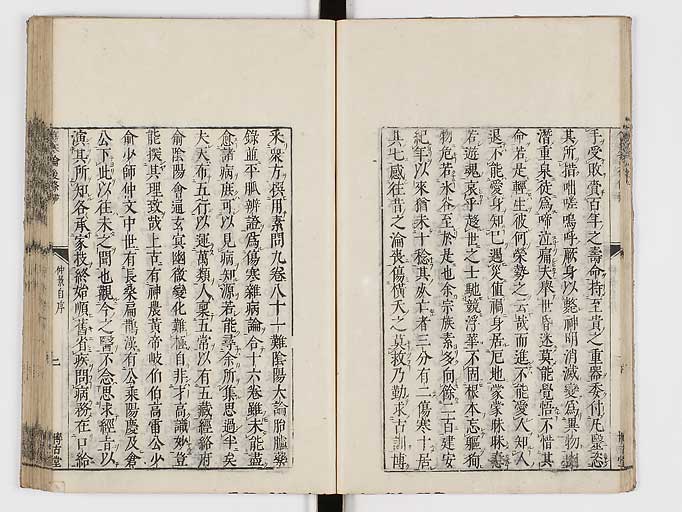 手受敗賁百年之壽命持至貴之重器委付凡醫恣
其所措咄嗟嗚呼厥身以斃神明消滅變爲異物幽
潛重泉徒爲啼泣痛夫舉世昏迷莫能覺悟不惜其
命若是輕生彼何榮勢之云哉而進不能愛人知人
退不能愛身知己遇災值禍身居厄地蒙蒙昧昧惷
若遊魂哀乎趨世之士馳競浮華不固根本忘軀徇
物危若冰谷至於是也余宗族素多向餘二百建安
紀年以來猶未十稔其死亡者三分有二傷寒十居
其七感往昔之淪喪傷橫夭之莫救乃勤求古訓博
采衆方撰用素問九卷八十一難陰陽大論胎臚藥
錄並平脈辨證爲傷寒雜病論合十六卷雖未能盡
愈諸病庶可以見病知源若能尋余所集思過半矣
夫天布五行以運萬類人稟五常以有五藏經絡府
俞陰陽會通玄冥幽微變化難極自非才高識妙豈
能探其理致哉上古有神農黃帝岐伯伯高雷公少
俞少師仲文中世有長桑扁鵲漢有公乘陽慶及倉
公下此以往未之聞也觀今之醫不念思求經旨以
演其所知各承家技終始順舊省疾問病務在口給
仲景自序
二
博古堂